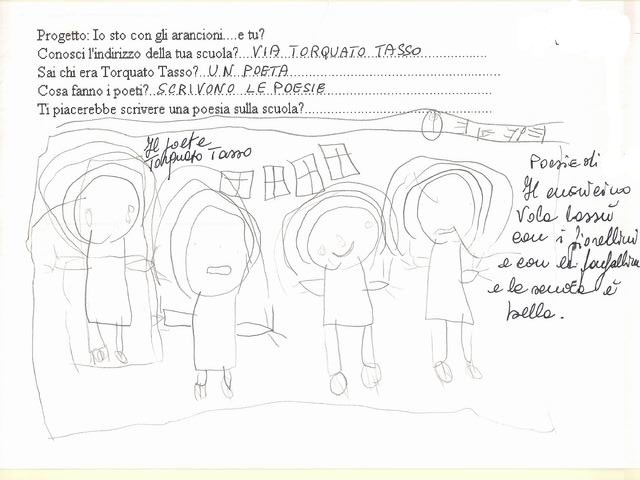 Progetto: Io sto con gli arancioni....e tu?
Conosci l'indirizzo della tua scuola?...VIA TORQUATO TASSO
Sai chi era Torquato Tasso?..UN POETA
Cosa fanno i poeti?..SCRIVONO LE POESIE
Ti piacerebbe scrivere una poesia sulla scuola?
Il poeta
Torquato Tasso
Poesie di
Il
Vola lassù
con i fiorellini
e con le farfalline
e la scuola è
bella.